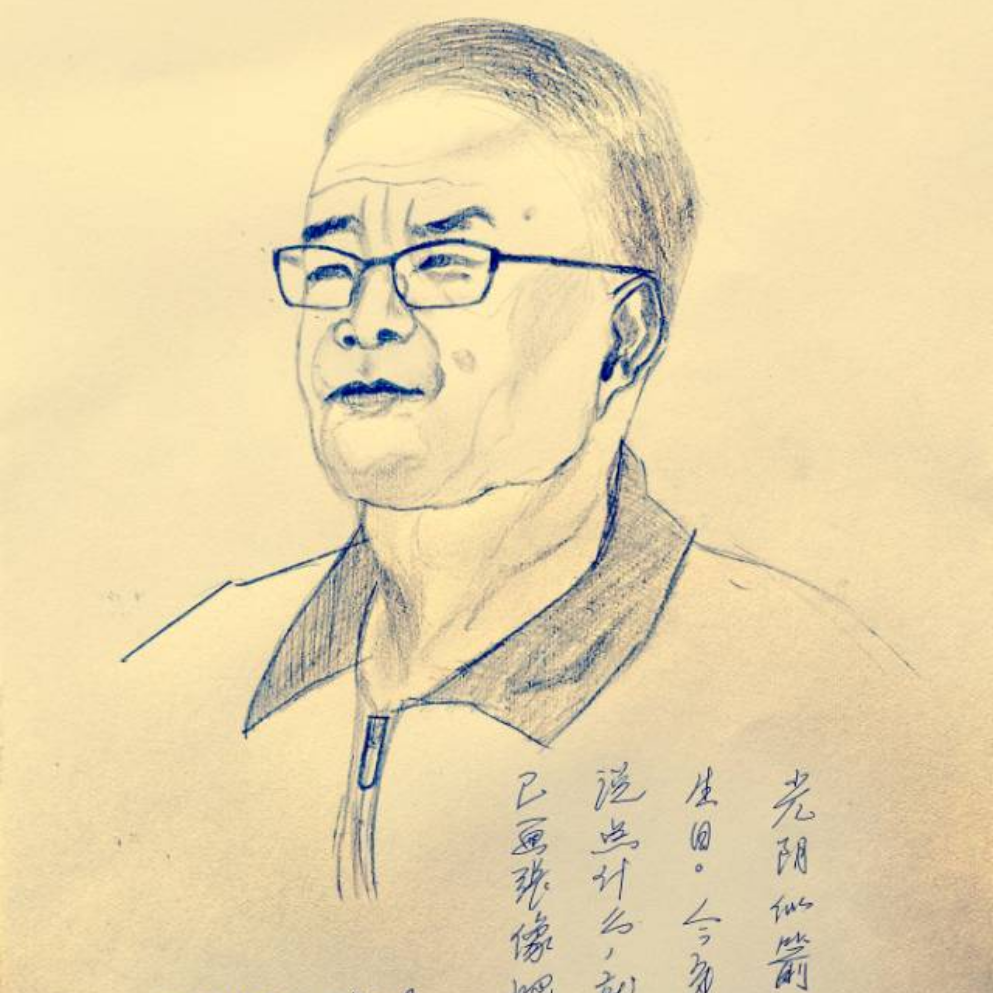 光阴似箭
生日。今天
说点什么，就
已画张像吧